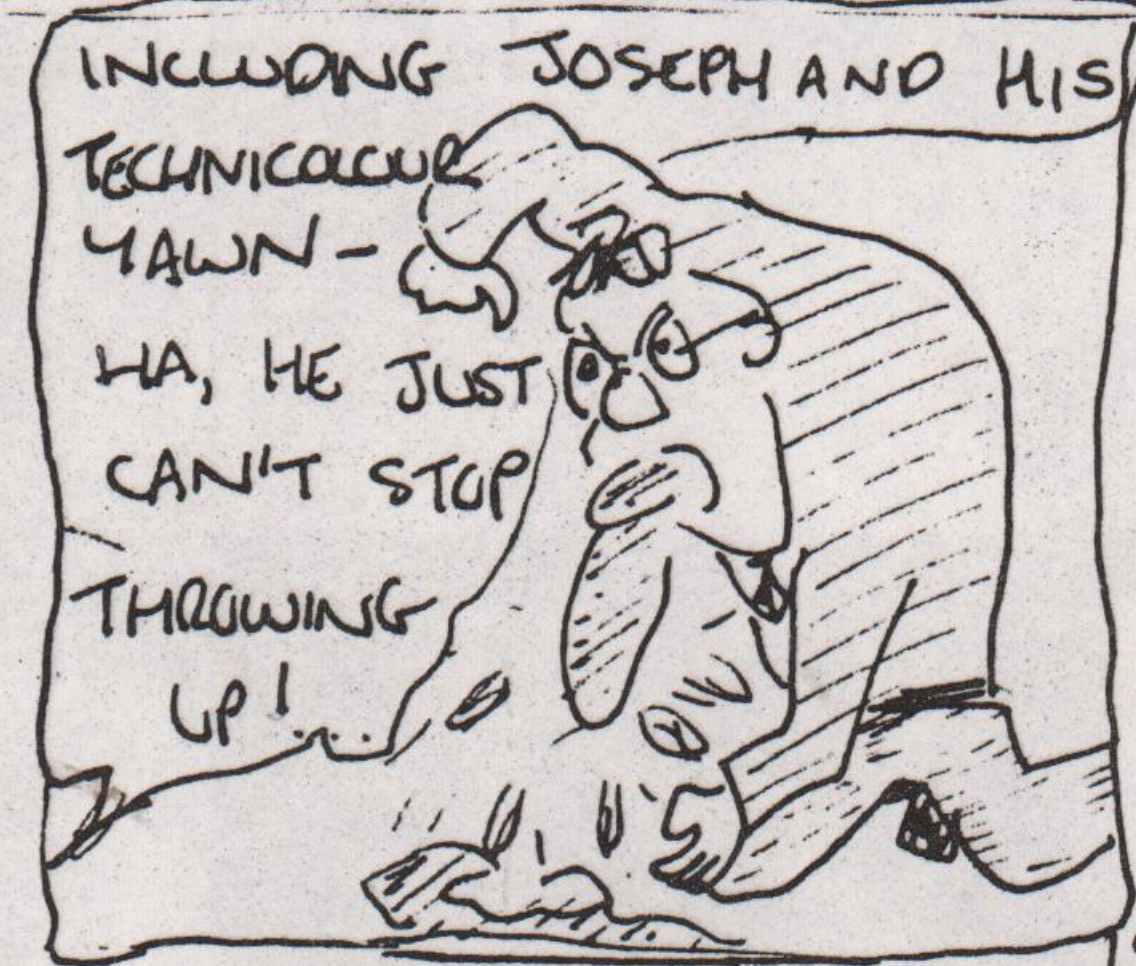 INCLUDING JOSEPH AND HIS
TECHNICOLOUR
YAWN -
HA, HE JUST
CAN'T STOP
THROWING
UP!...